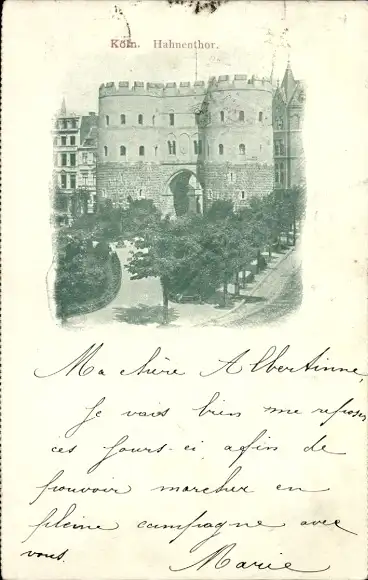 Köln. Hahnenthor.
Ma chère Albertinne,
Je vais bien me reposer
ces jours-ci afin de
pouvoir marcher en
pleine campagne avec
vous.
Marie